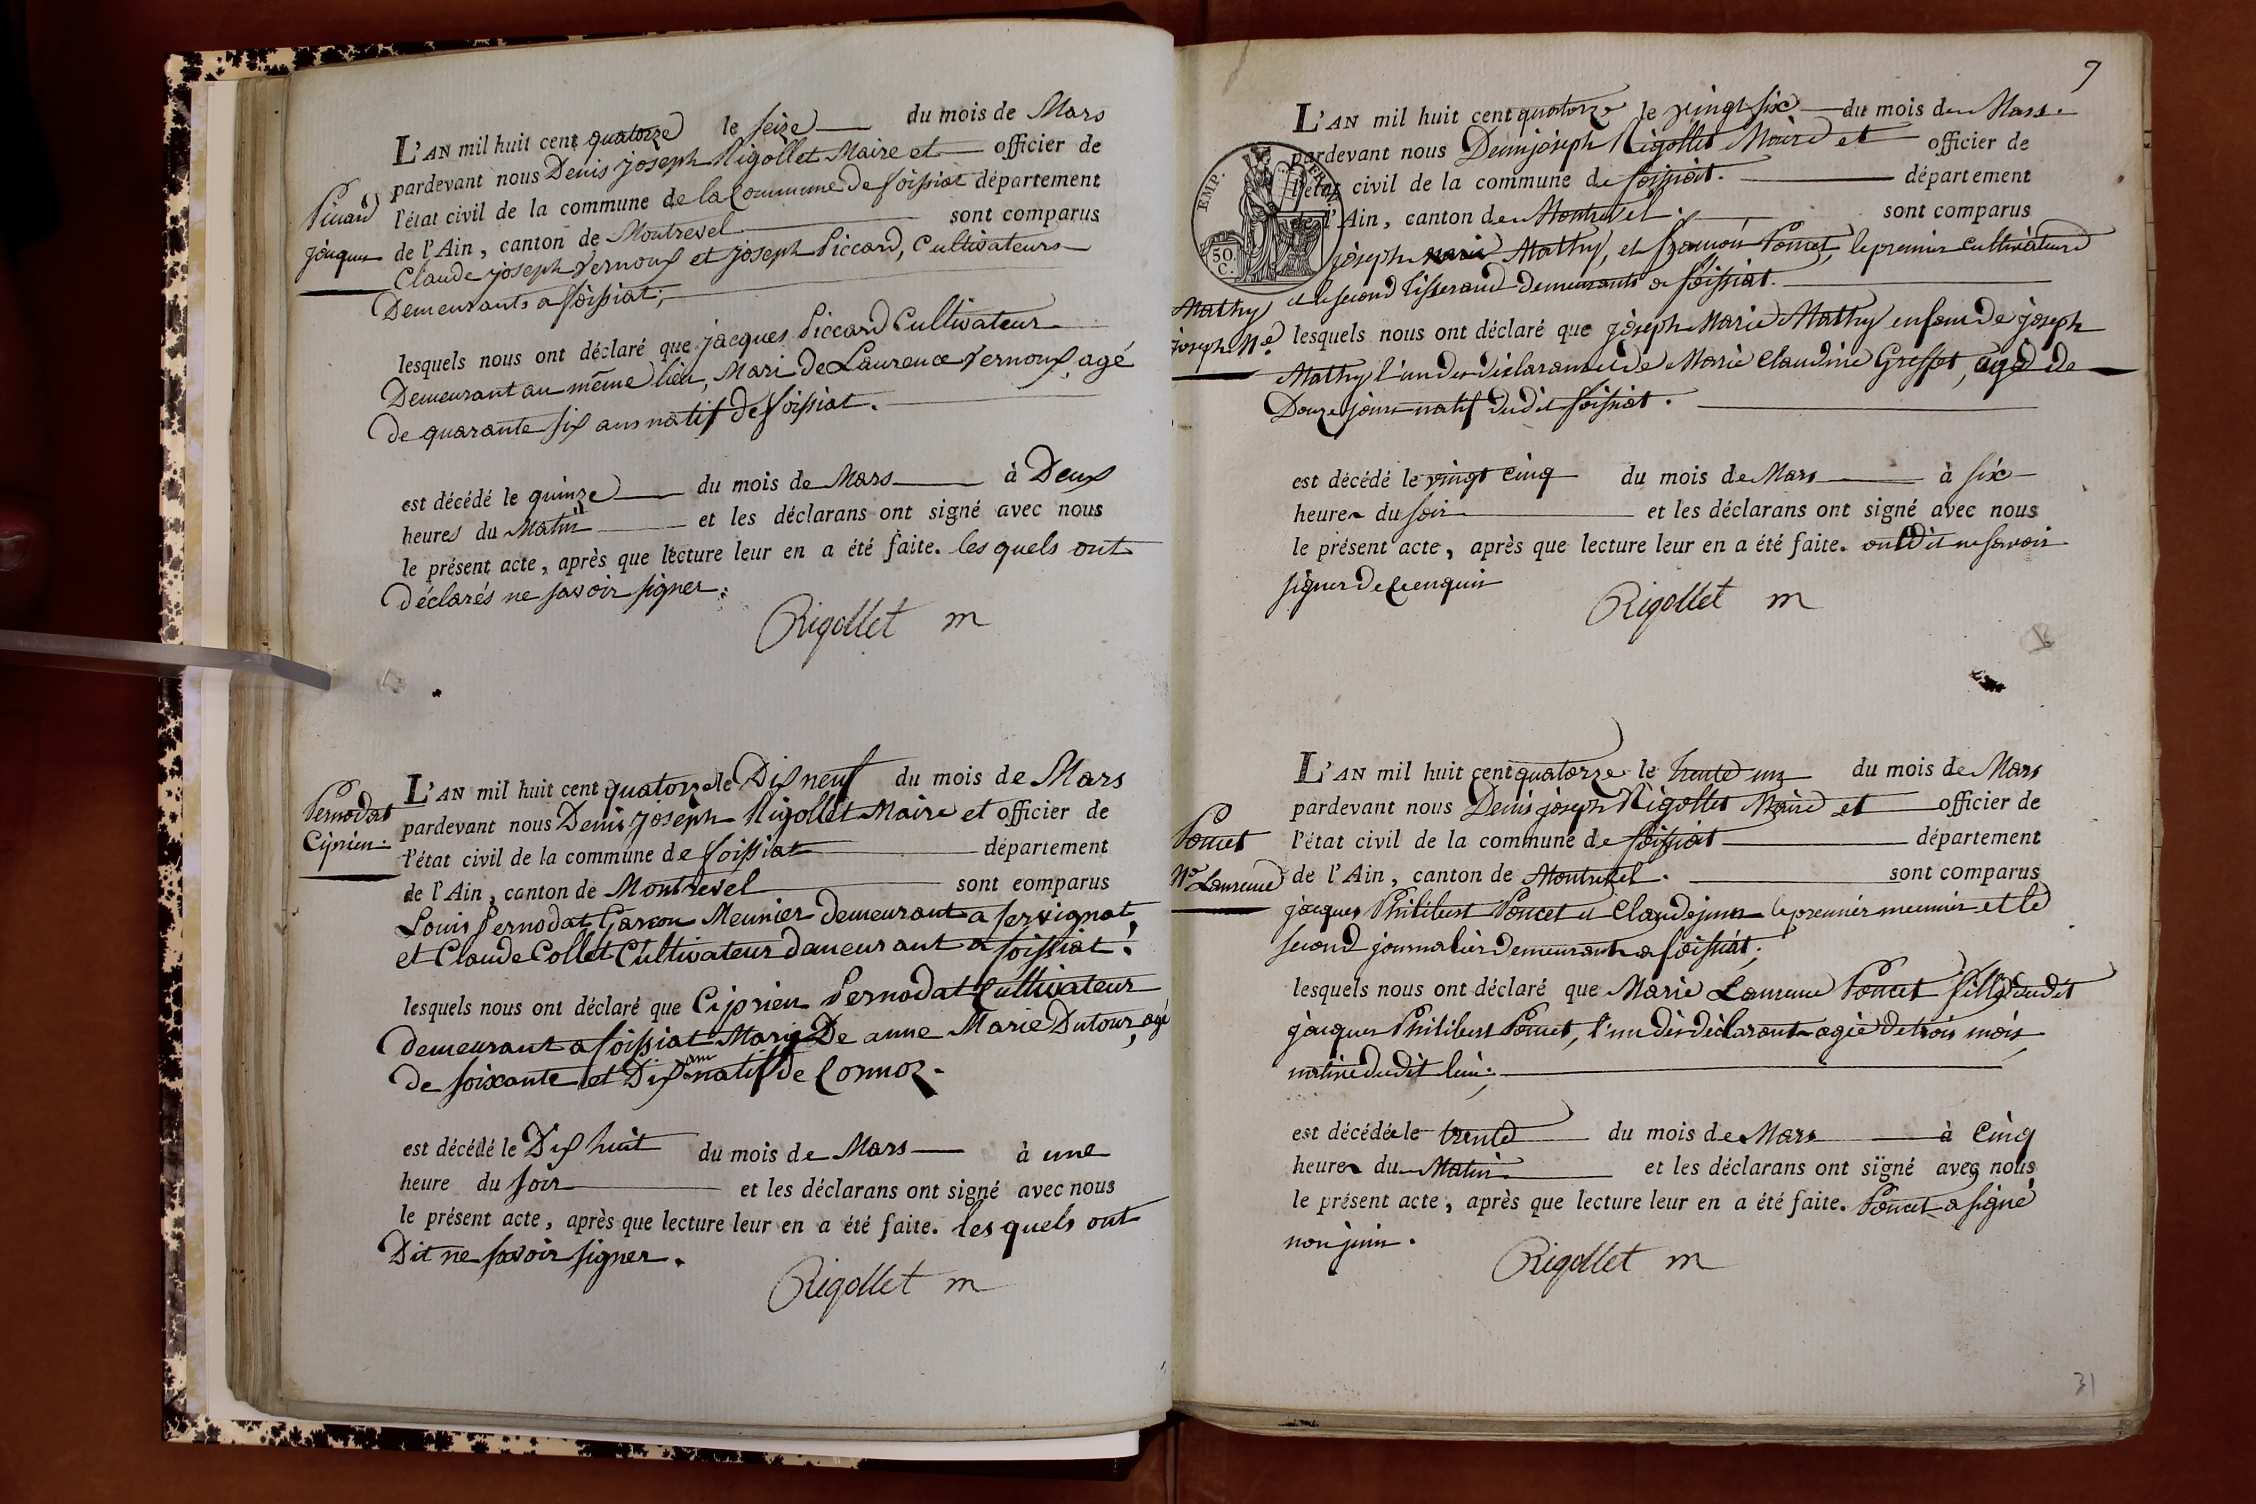 L'AN mil huit cent quatorze le seize du mois de Mars
pardevant nous Denis joseph Rigollet Maire et officier de
l'état civil de la commune de la Commune de foissiat département
de l'Ain, canton de Montrevel sont comparus
Claude joseph Vernoux et joseph Piccard, Cultivateurs
Demeurants a foissiat;
Picard
jacques
lesquels nous ont déclaré que jacques Piccard Cultivateur
Demeurant au même lieu, Mari de Laurence Vernoux, agé
de quarante six ans natif de foissiat.
est décédé le quinze du mois de Mars à Deux
heures du Matin et les déclarans ont signé avec nous
le présent acte, après que lecture leur en a été faite. les quels ont
déclarés ne savoir signer.
Rigollet m
L'AN mil huit cent quatorze le Dix neuf du mois de Mars
pardevant nous Denis joseph Rigollet Maire et officier de
l'état civil de la commune de foissiat département
de l'Ain, canton de Montrevel sont comparus
Louis Pernodat Garcon Meunier demeurant a servignat,
et Claude Collet Cultivateur demeurant a foissiat.
Pernodat
Ciprien.
lesquels nous ont déclaré que Ciprien Pernodat Cultivateur
demeurant a foissiat Mary De anne Marie Dutour, agé
de soixante et Dix ans natif de Connoz.
est décédé le Dix huit du mois de Mars à une
heure du soir et les déclarans ont signé avec nous
le présent acte, après que lecture leur en a été faite. les quels ont
Dit ne savoir signer.
Rigollet m
7
L'AN mil huit cent quatorze le vingt six du mois de Mars
pardevant nous Denis joseph Rigollet Maire et officier de
l'état civil de la commune de foissiat. département
de l'Ain, canton de Montrevel. sont comparus
joseph Mathy, et françois Poncet, le premier cultivateur
et le second tisserand demeurants a foissiat.
EMP.
50
C.
Mathy
joseph Me.
lesquels nous ont déclaré que joseph Marie Mathy enfant de joseph
Mathy l'un des déclarants et de Marie Claudine Greffet, agé de
Douze jours natif dudit foissiat.
est décédé le vingt cinq du mois de Mars à six
heures du soir et les déclarans ont signé avec nous
le présent acte, après que lecture leur en a été faite. ont dit ne savoir
signer de ce enquis
Rigollet m
L'AN mil huit cent quatorze le trente un du mois de Mars
pardevant nous Denis joseph Rigollet Maire et officier de
l'état civil de la commune de foissiat département
de l'Ain, canton de Montrevel. sont comparus
jacques Philibert Poncet et Claude juin le premier meunier et le
second journalier demeurants a foissiat;
Poncet
Me Laurence
lesquels nous ont déclaré que Marie Laurence Poncet fille dudit
jacques Philibert Poncet, l'un des déclarants agée de trois mois,
native dudit lieu.
est décédée le trente du mois de Mars à Cinq
heures du Matin. et les déclarans ont signé avec nous
le présent acte, après que lecture leur en a été faite. Poncet a signé
non juin.
Rigollet m
31